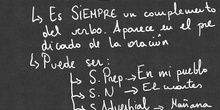 ↳ Es SIEMPRE un complemento
del verbo. Aparece en el pre
dicado de la oración
↳ Puede ser:
→ S. Prep → En mi pueblo
→ S. N → El martes
→ S. Adverbial → Mañana